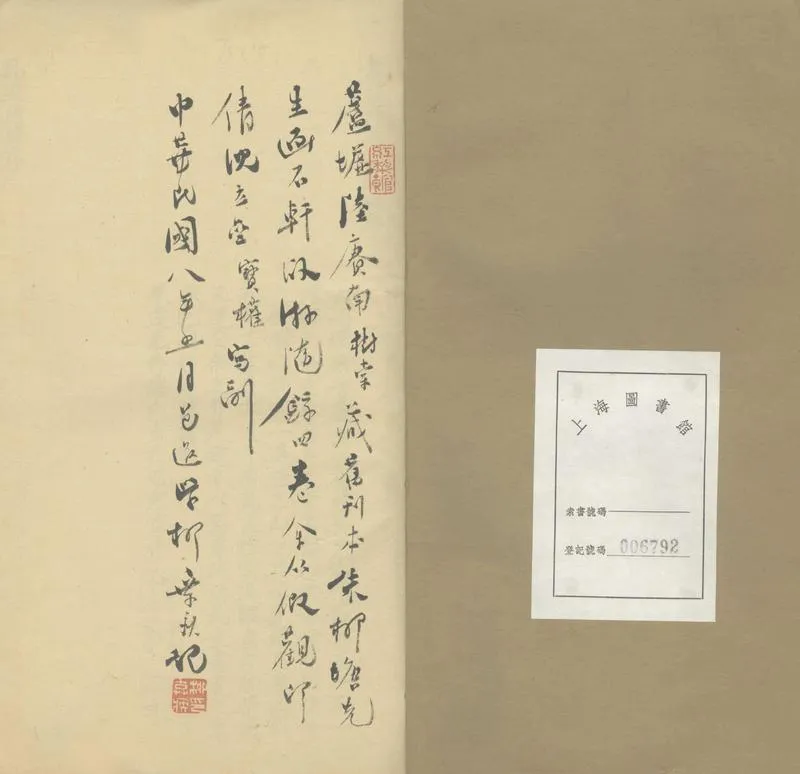 蘆墟陸賡南樹棠藏舊刊本朱柳塘先
生画石軒臥游隨錄四卷余從假觀即
倩沈立盦寶權寫副
中華民國八年五月邑後學柳棄疾記
柳印棄疾
上海圖書館
索書號碼
登記號碼 006792